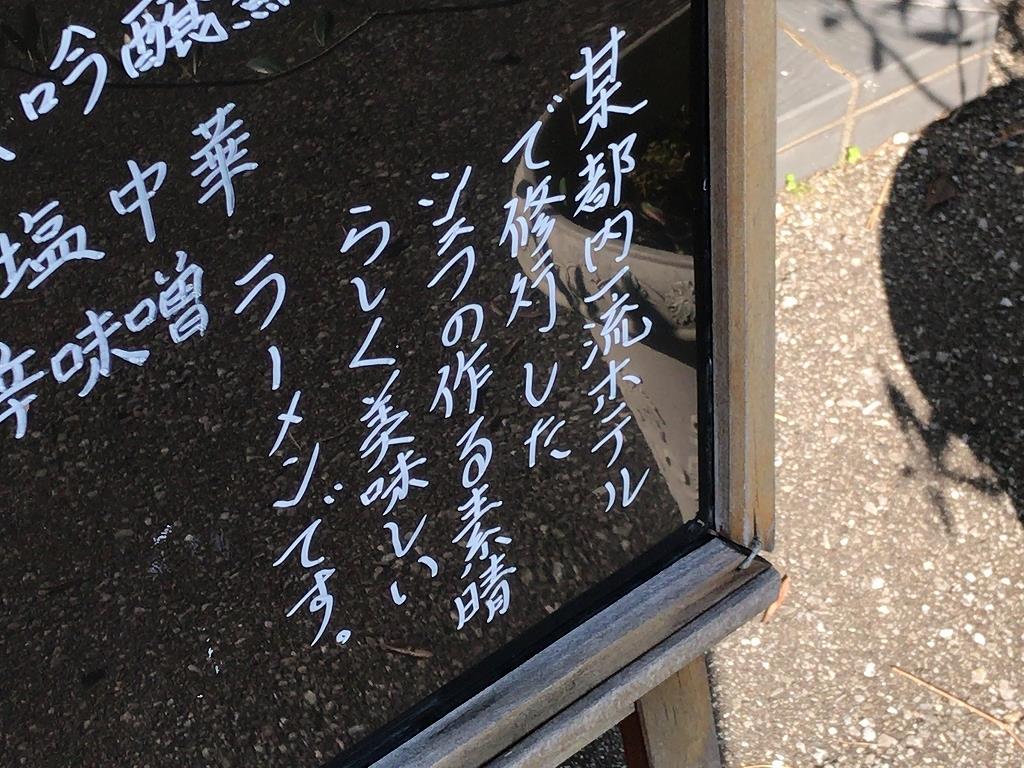 吟醸
塩中華
辛味噌
某都内一流ホテル
で修行した
シェフの作る素晴
らしく美味しい
ラーメンです。